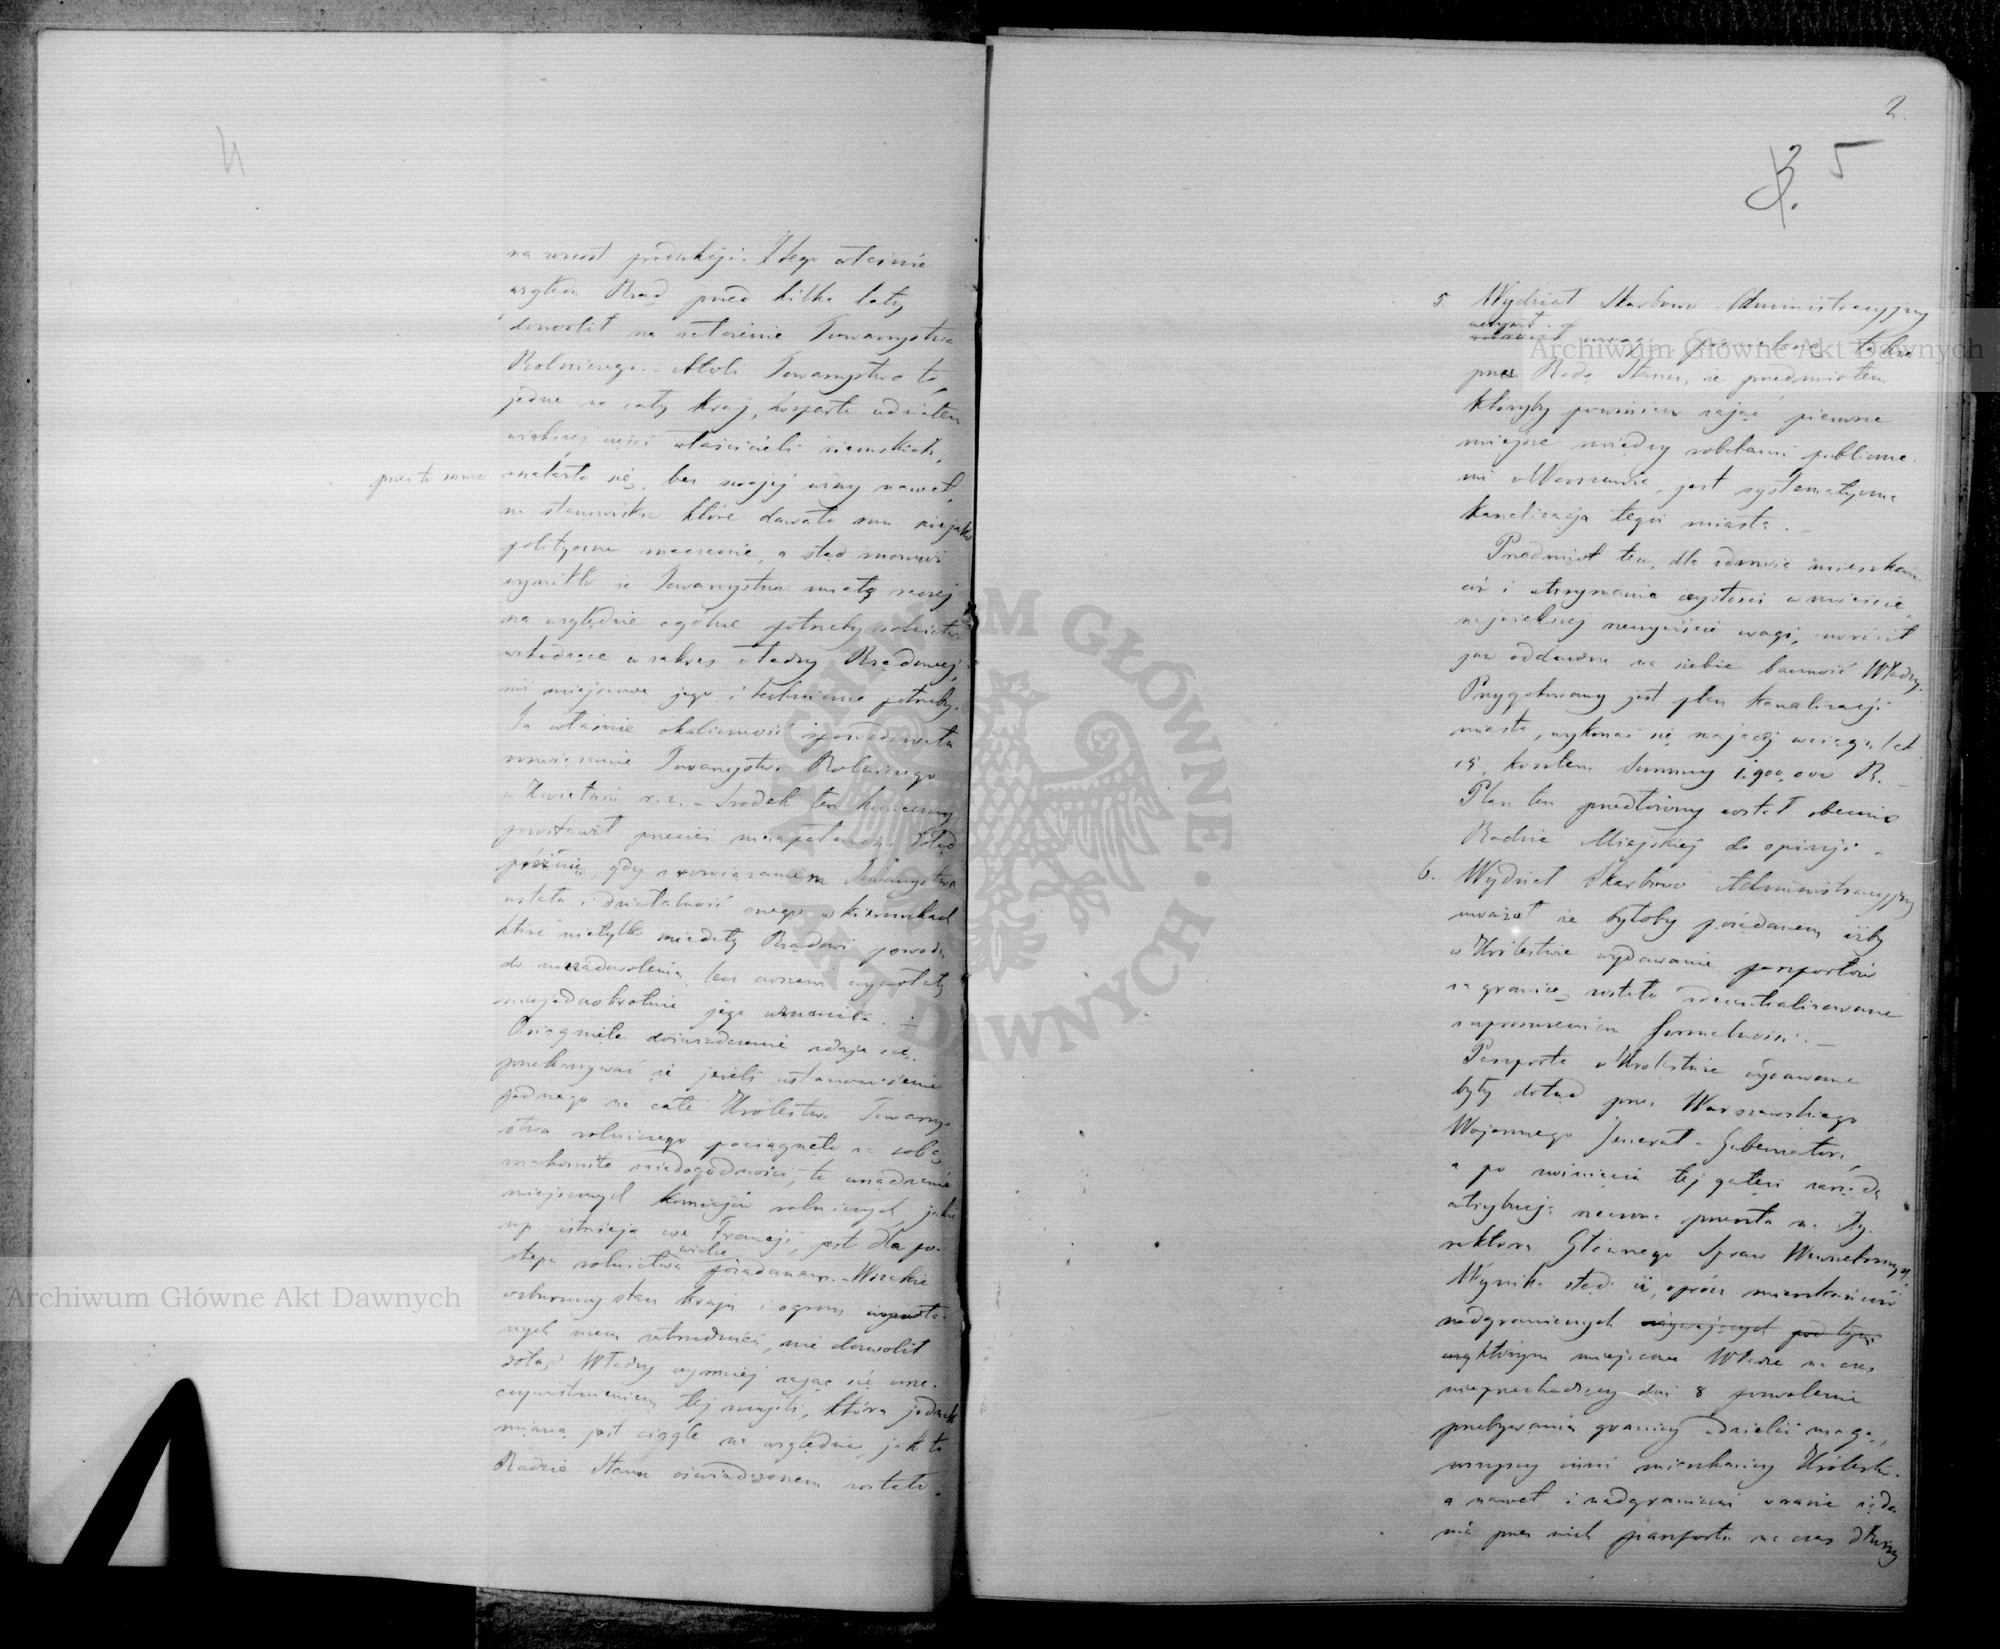 4
na wzrost produkcji. Z tego właśnie
względu Rząd przed kilku laty,
dozwolił na założenie Towarzystwa
Rolniczego. Atoli Towarzystwo to,
jedne na cały kraj, wsparte udziałem
większej części właścicieli ziemskich,
przez to samo
znalazło się, bez swojej winy nawet,
na stanowisku które dawało mu niejako
polityczne znaczenie, a stąd znowu
wynikło że Towarzystwo miało raczej
na względzie ogólne potrzeby rolnictwa
wchodzące w zakres władzy Rządowej,
niż miejscowe jego i techniczne potrzeby.
Ta właśnie okoliczność spowodowała
rozwiązanie Towarzystwa Rolniczego
w Kwietniu r.z. – Środek ten konieczny
pozostawił przecież niezapełnioną dotąd
próżnię, gdy z rozwiązaniem Towarzystwa
ustała i działalność onego w kierunkach
które nietylko niedały Rządowi powodu
do niezadowolenia, lecz owszem wywołały
niejednokrotnie jego uznanie. –
Osiągnięte doświadczenie zdaje się
przekonywać że jeżeli ustanowienie
jednego na całe Królestwo Towarzy-
stwa rolniczego pociągnęło za sobą
znakomite niedogodności, to urządzenie
miejscowych komicjów rolniczych, jakie
np. istnieją we Francji, jest dla po-
stępu rolnictwa wielce pożądanem. – Wszakże
wzburzony stan kraju i ogrom
nych zatrudnień, nie dozwolił
dotąd Władzy czynniej zająć się urze-
czywistnieniem tej myśli, która jednak
mianą jest ciągle na względzie, jak to
Radzie Stanu oświadczonem zostało.
2.
3. 5
5. Wydział Skarbowo Administracyjny
uczynił
uwagę, powtórzoną także
przez Radę Stanu, że przedmiotem
któryby powinien zająć pierwsze
miejsce między robotami publiczne-
mi w Warszawie, jest systematyczna
kanalizacja tegoż miasta. –
Przedmiot ten, dla zdrowia mieszkań-
ców i utrzymania czystości w mieście,
największej rzeczywiście wagi, zwrócił
już oddawna na siebie baczność Władzy.
Przygotowany jest plan kanalizacji
miasta, wykonać się mającej w ciągu lat
15, kosztem Summy 1.900,000 R. –
Plan ten przedłożony został obecnie
Radzie Miejskiej do opinji –
6. Wydział Skarbowo Administracyjny
uważał że byłoby pożądanem iżby
w Królestwie wydawanie paszportów
za granicę, zostało zdecentralizowane
z uproszczeniem formalności. –
Paszporta w Królestwie wydawane
były dotąd przez Warszawskiego
Wojennego Jenerał-Gubernatora,
a po zwinięciu tej gałęzi zarządu
atrybucja rzeczona przeszła na Dy-
rektora Głównego Spraw Wewnętrznych.
Wynika stąd iż, oprócz mieszkańców
nadgranicznych używających pod tym
którym miejscowe Władze na czas
nieprzechodzący dni 8 pozwolenie
przebywania granicy udzielić mogą,
wszyscy inni mieszkańcy Królestwa
a nawet i nadgraniczni w razie żąda-
nia przez nich paszportu na czas dłuższy
Archiwum Główne Akt Dawnych
Archiwum Główne Akt Dawnych
ARCHIWUM GŁÓWNE AKT DAWNYCH